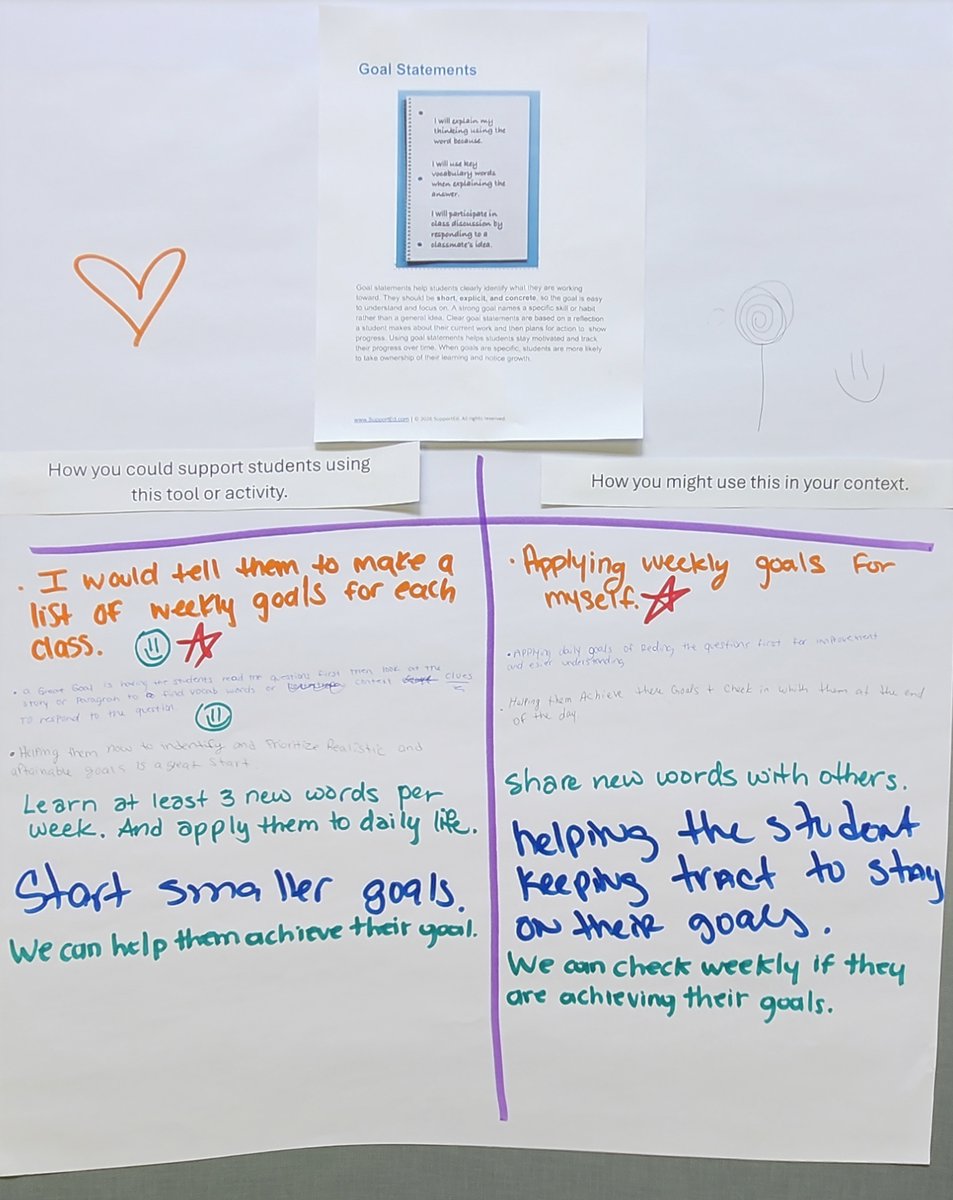 Goal Statements
I will explain my
thinking using the
word because.
I will use key
vocabulary words
when explaining the
answer.
I will participate in
class discussion by
responding to a
classmate's idea.
Goal statements help students clearly identify what they are working
toward. They should be short, explicit, and concrete, so the goal is easy
to understand and focus on. A strong goal names a specific skill or habit
rather than a general idea. Clear goal statements are based on a reflection
a student makes about their current work and then plans for action to show
progress. Using goal statements helps students stay motivated and track
their progress over time. When goals are specific, students are more likely
to take ownership of their learning and notice growth.
www.SupportEd.com | © 2026 SupportEd. All rights reserved.
How you could support students using
this tool or activity.
• I would tell them to make a
list of weekly goals for each
class.
• a Great Goal is having the students read the question first then look at the
story or Paragraph to find vocab words or context clues
TO respond to the question.
• Helping them now to indentify and Prioritize Realistic and
aftainable goals is a great start.
Learn at least 3 new words per
week. And apply them to daily life.
Start smaller goals.
We can help them achieve their goal.
How you might use this in your context.
• Applying weekly goals for
myself.
• APPlying daily goals of Reding the questions first for improvement
and easier understanding
• Helping them Achieve there Goals + Check in whith them at the end
of the day
Share new words with others.
helping the student
keeping tract to stay
on their goals.
We can check weekly if they
are achieving their goals.